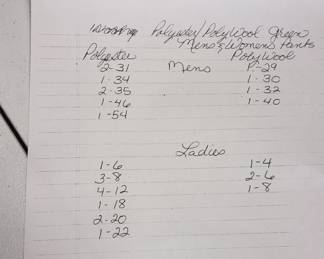 Polyester/PolyWool Green
Men's & Womens Pants
Polyester PolyWool
2-31 Mens -29
1-34 1-30
2-35 1-32
1-46 1-40
1-54
Ladies
1-6 1-4
3-8 2-6
4-12 1-8
1-18
2-20
1-22